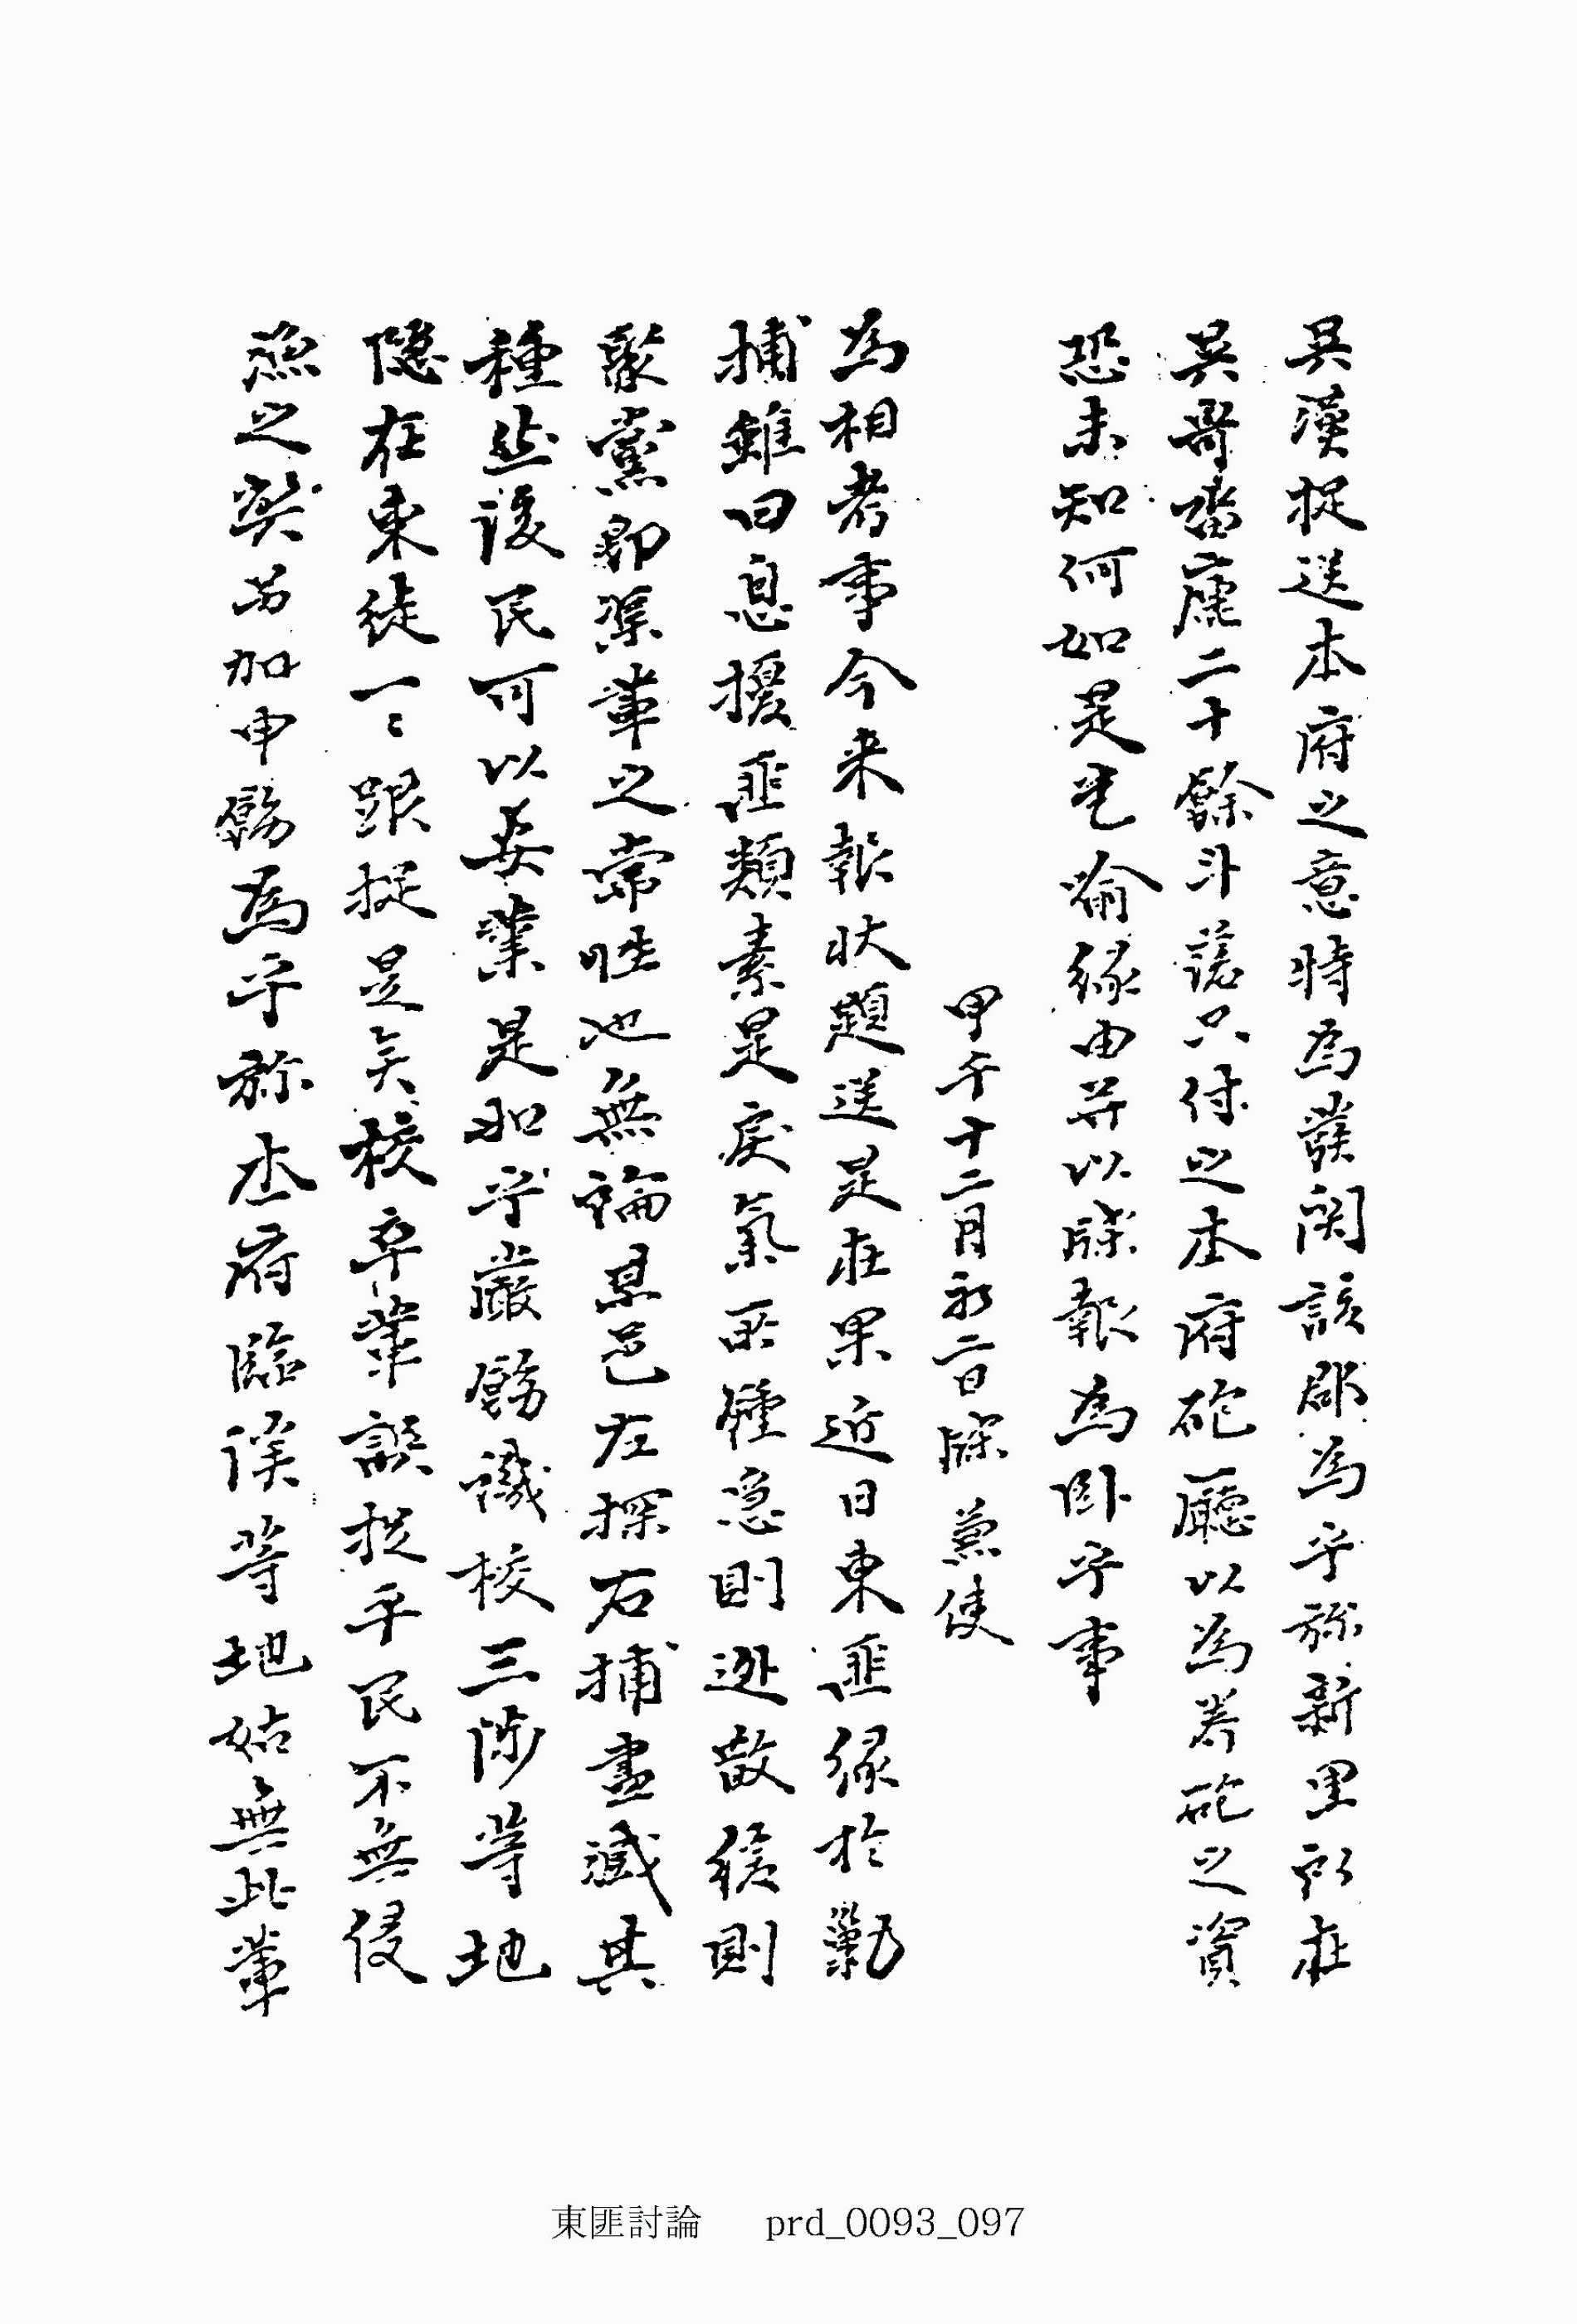 吳漢捉送本府之意時爲發関該郡爲乎旀新里所在
吳哥畓庫二十餘斗諾只付之本府砲廳以爲養砲之資
恐未知何如是乎喩緣由并以牒報爲卧乎事
甲午十二月初二日牒 兼使
爲相考事今来報状題送是在果近日東匪緣於勦
捕雖曰息擾匪類素是戾氣所種急則逃散緩則
聚黨卽渠輩之常性也無論某邑左探右捕盡滅其
種然後民可以安業是如乎嚴飭譏校三陟等地
隱在東徒一一跟捉是矣校卒輩誤捉平民不無侵
漁之獘另加申飭爲乎旀本府臨溪等地姑無此輩
東匪討論 prd_0093_097